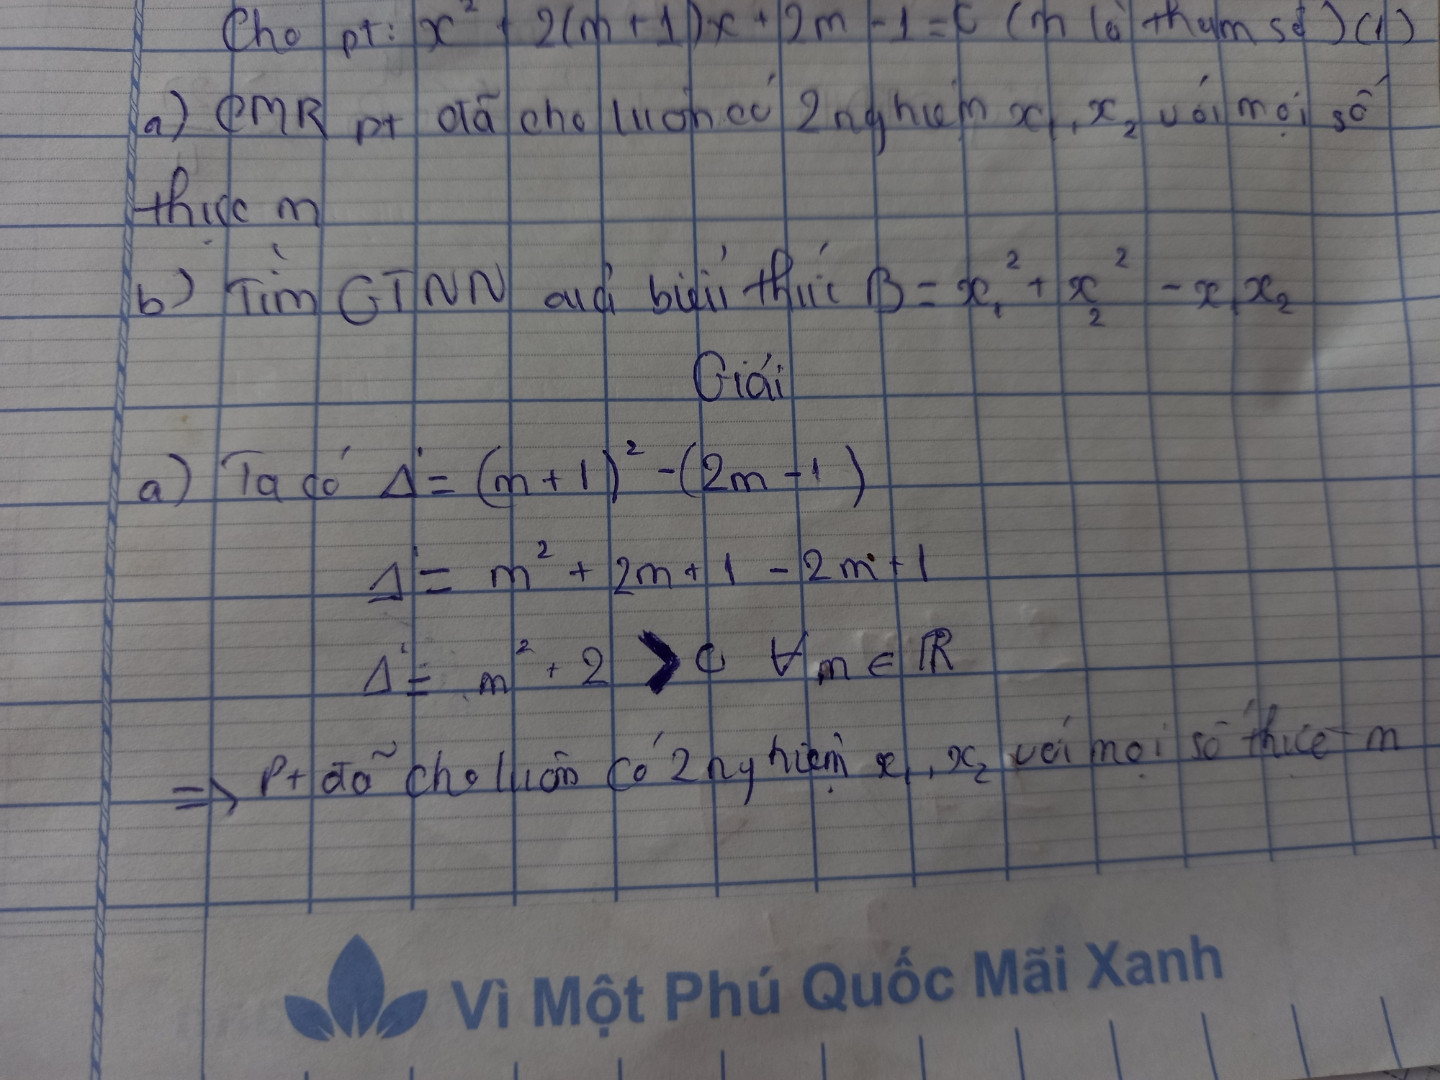 Cho pt: x² + 2(m+1)x+2m-1=0 (m là tham số)(1)
a) CMR pt đã cho luôn có 2 nghiệm x₁, x₂ với mọi số
thực m
b) Tìm GTNN của biểu thức B = x₁² + x₂² - x₁x₂
Giải
a) Ta có Δ' = (m+1)² - (2m-1)
Δ' = m² + 2m + 1 - 2m + 1
Δ' = m² + 2 > 0 ∀m ∈ ℝ
=> Pt đã cho luôn có 2 nghiệm x₁, x₂ với mọi số thực m
Vì Một Phú Quốc Mãi Xanh